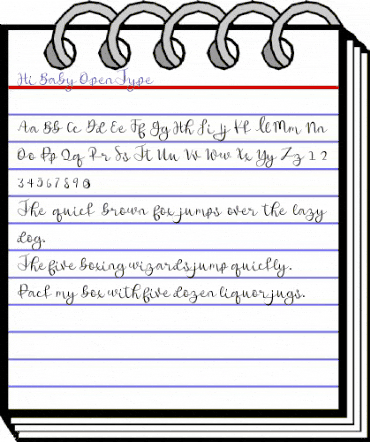 Hi Baby OpenType
Aa Bb Cc Dd Ee Ff Gg Hh Ii Jj Kk Ll Mm Nn
Oo Pp Qq Rr Ss Tt Uu Vv Ww Xx Yy Zz 1 2
3 4 5 6 7 8 9 0
The quick brown fox jumps over the lazy
dog.
The five boxing wizards jump quickly.
Pack my box with five dozen liquor jugs.